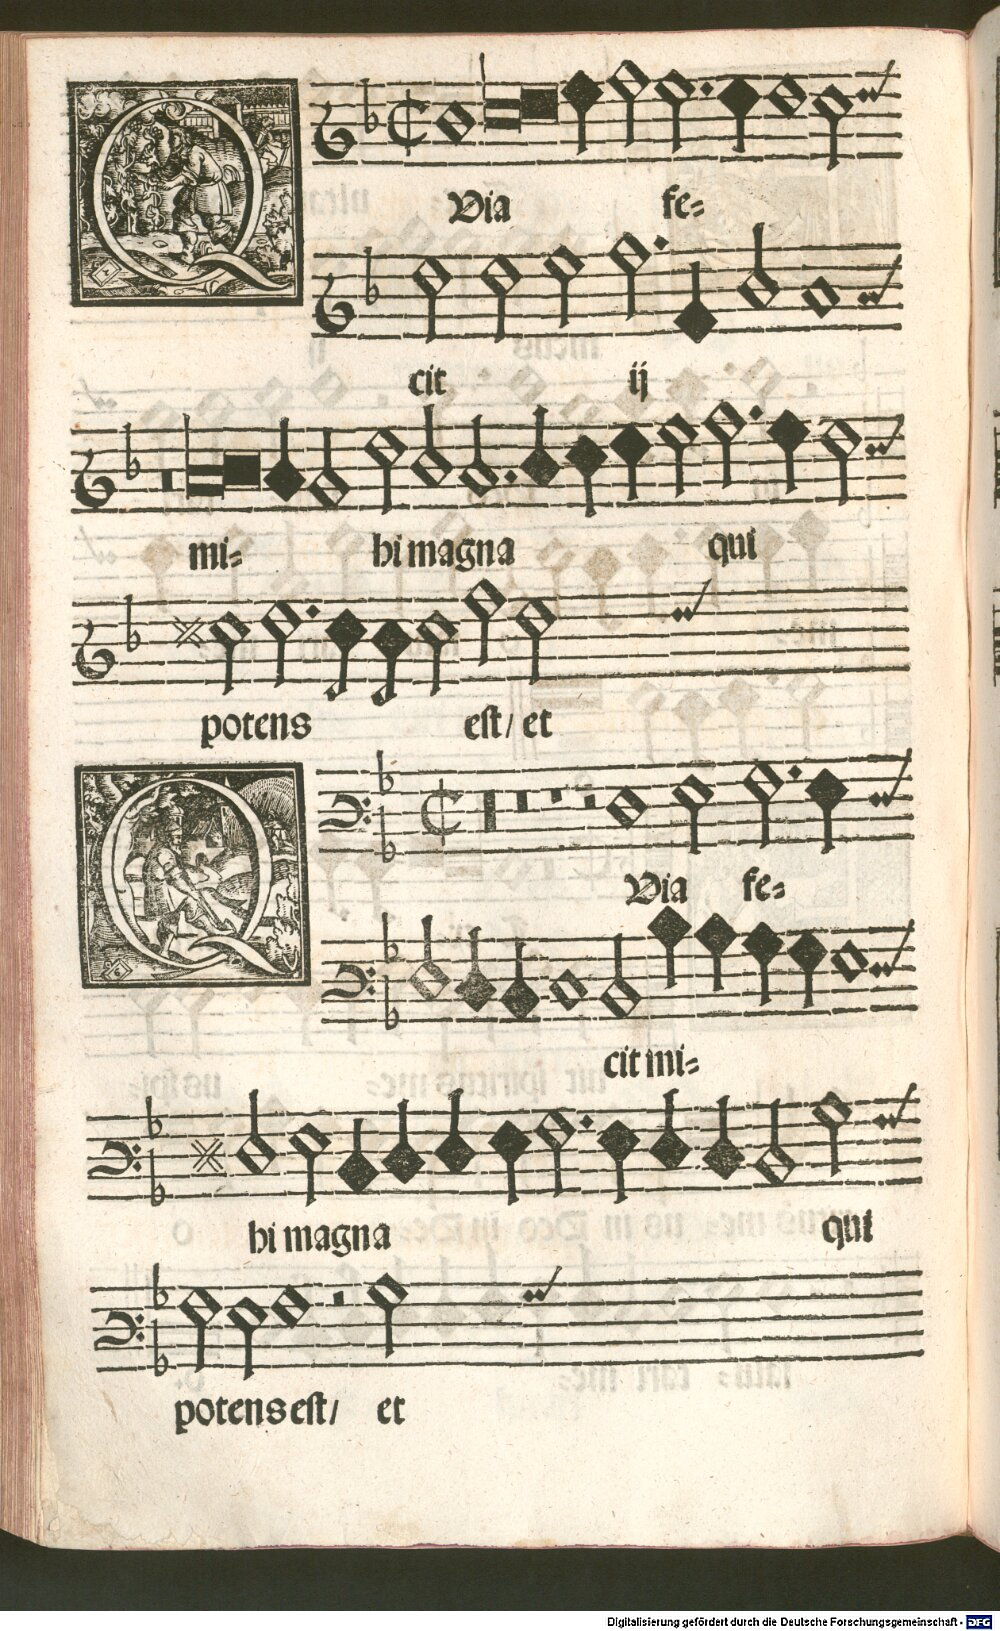 QVia fe=
cit ij
mi= hi magna qui
potens est/ et
QVia fe=
cit mi=
hi magna qui
potens est/ et
Digitalisierung gefördert durch die Deutsche Forschungsgemeinschaft - DFG